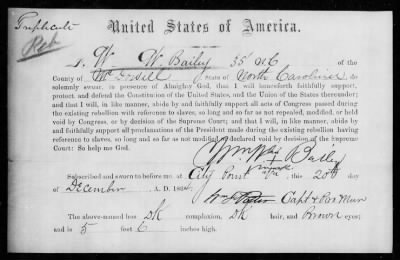 Triplicate
Reb
United States of America.
I, W. W. Bailey 35 of the
County of McDowell State of North Carolina, do
solemnly swear, in presence of Almighty God, that I will henceforth faithfully support,
protect and defend the Constitution of the United States, and the Union of the States thereunder;
and that I will, in like manner, abide by and faithfully support all acts of Congress passed during
the existing rebellion with reference to slaves, so long and so far as not repealed, modified, or held
void by Congress, or by decision of the Supreme Court; and that I will, in like manner, abide by
and faithfully support all proclamations of the President made during the existing rebellion having
reference to slaves, so long and so far as not modified or declared void by decision of the Supreme
Court: So help me God.
Wm W his X mark Bailey
Subscribed and sworn to before me at City Point, this 20th day
of December A. D. 1864,
Capt & Pro Mar
The above-named has dk complexion, dk hair, and Brown eyes;
and is 5 feet 6 inches high.